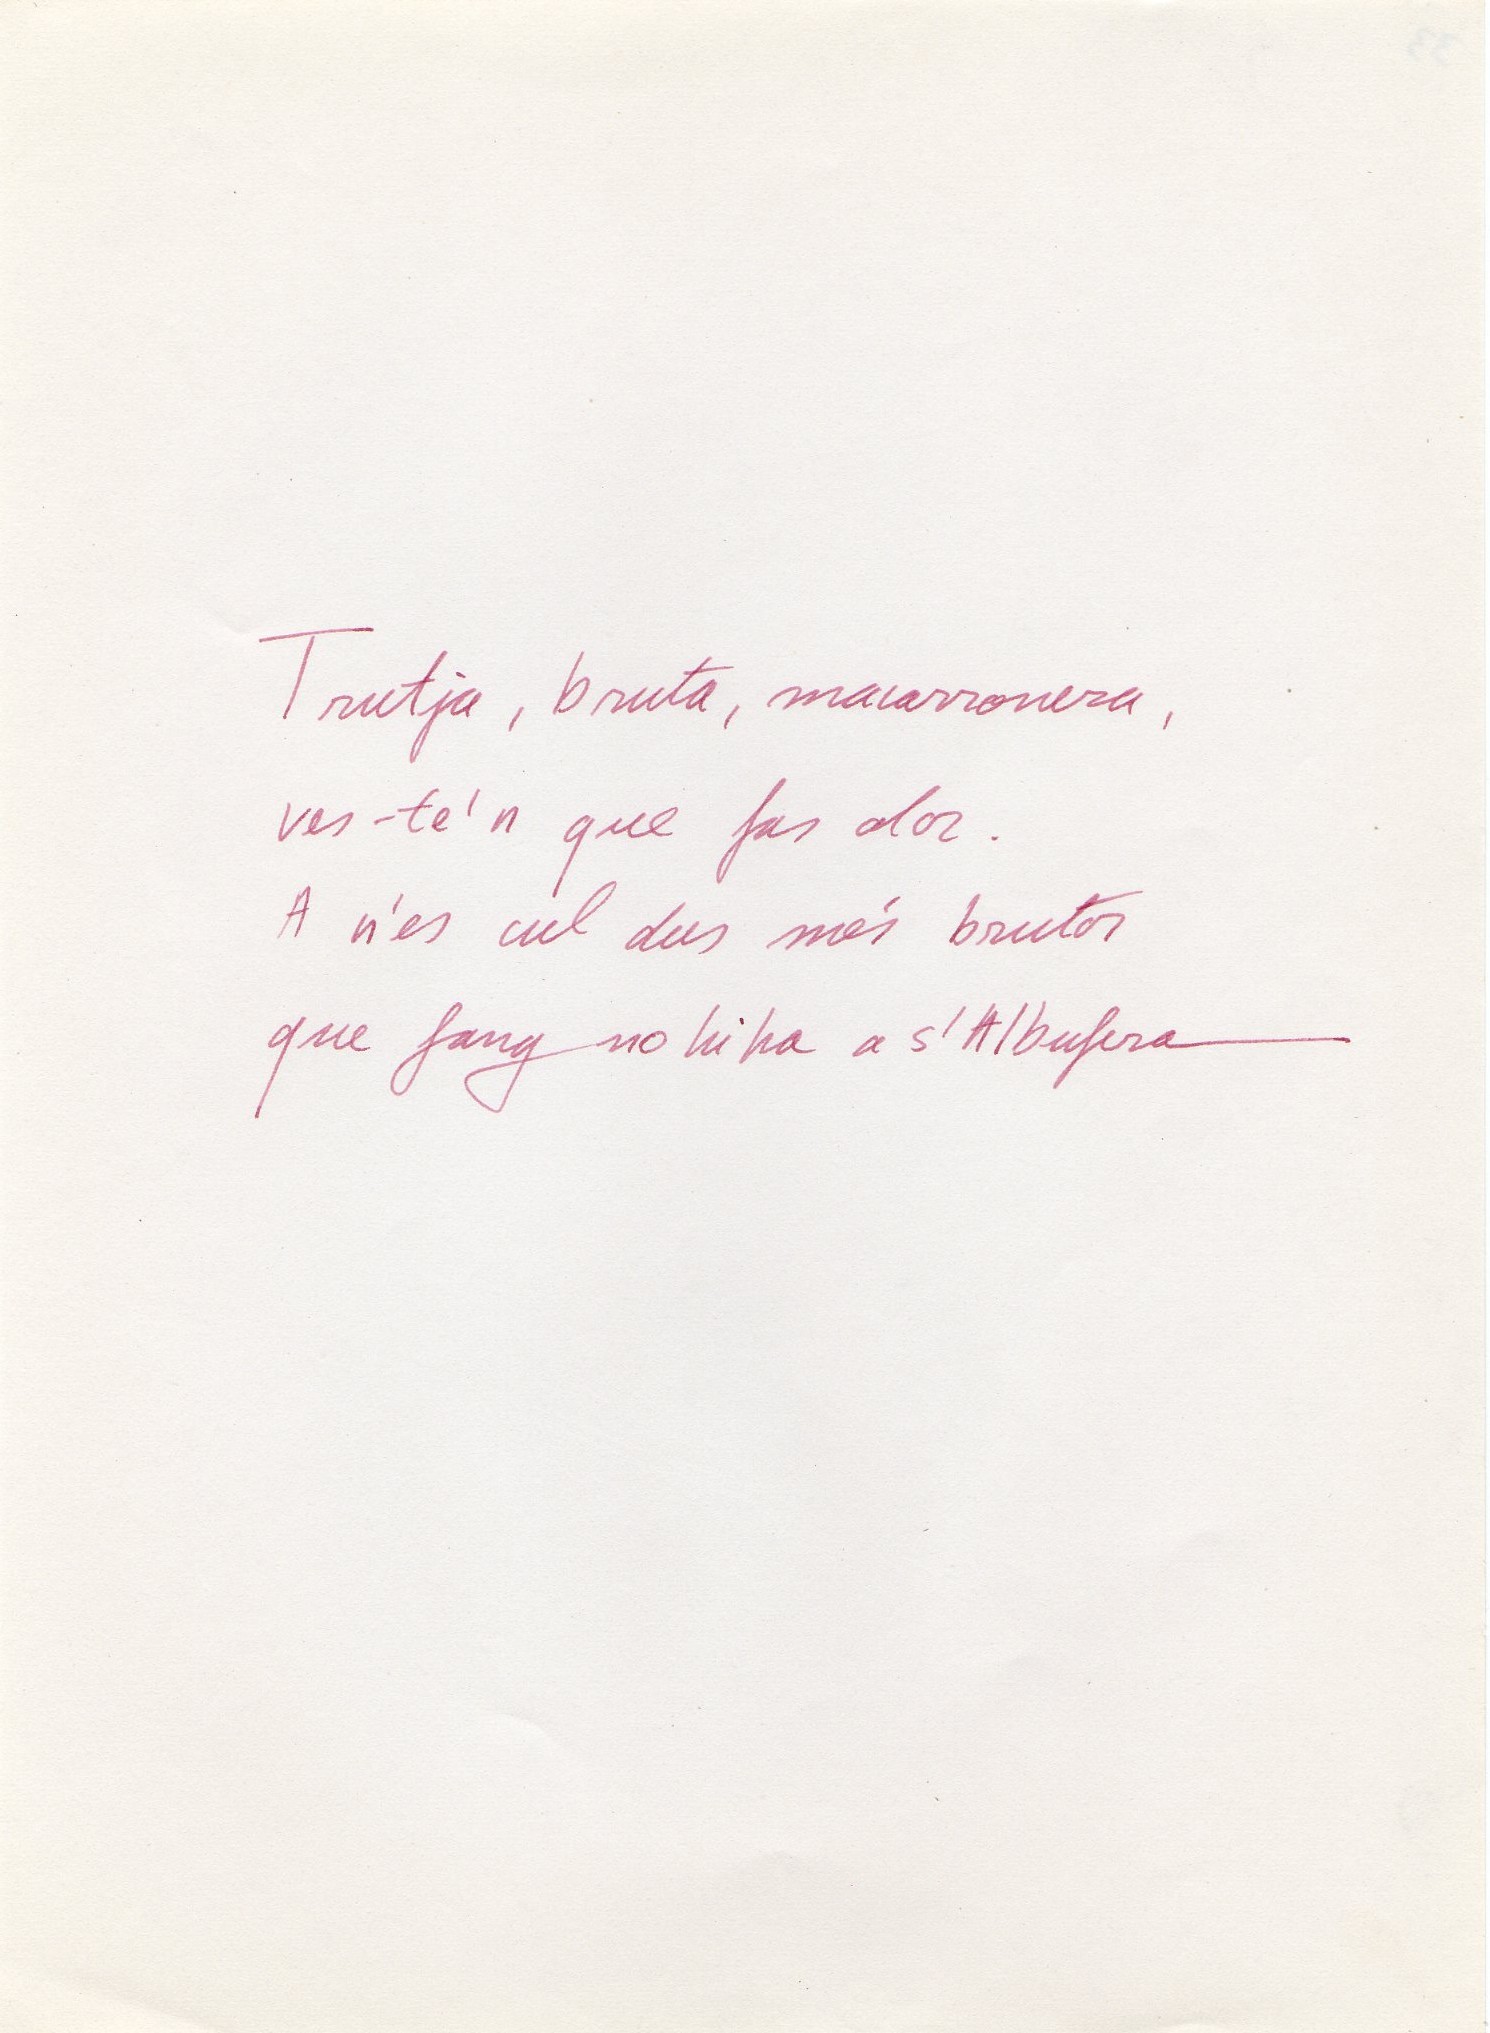 Trutja, bruta, macarronera,
ves-te'n que fas olor.
A n'es cul dus més brutor
que fang no hi ha a s'Albufera